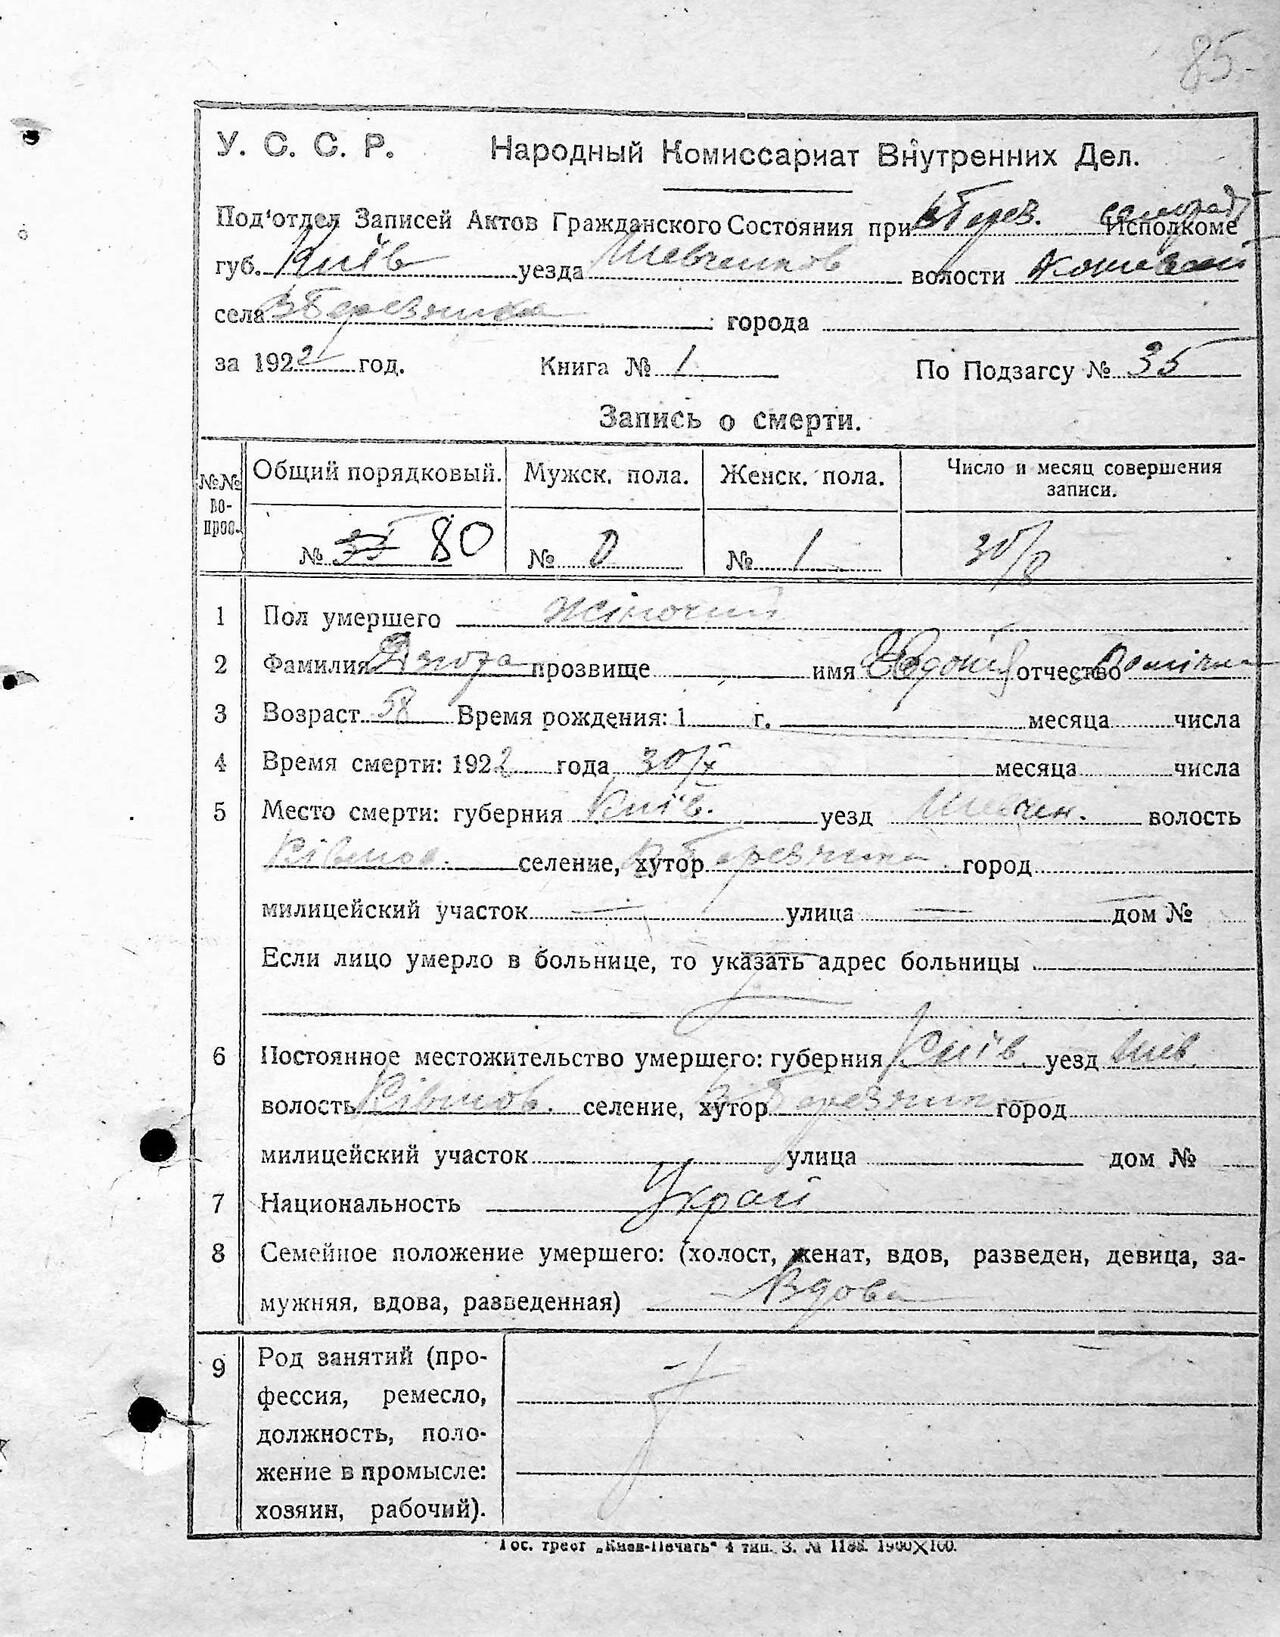 85
У. С. С. Р. Народный Комиссариат Внутренних Дел.
Под'отдел Записей Актов Гражданского Состояния при В Терез. Исполкоме
губ. Київ уезда Шевченков волости
села города
за 1922 год. Книга № 1 По Подзагсу № 35
Запись о смерти.
№№ вопрос. Общий порядковый. Мужск. пола. Женск. пола. Число и месяц совершения записи.
№ 35 80 № 0 № 1 30/8
1 Пол умершего жіночий
2 Фамилия прозвище имя отчество
3 Возраст 58 Время рождения: 1 г. месяца числа
4 Время смерти: 1922 года 30/X месяца числа
5 Место смерти: губерния Київ. уезд Шевчен. волость
селение, хутор город
милицейский участок — улица — дом №
Если лицо умерло в больнице, то указать адрес больницы
6 Постоянное местожительство умершего: губерния Київ уезд Шев.
волость селение, хутор город
милицейский участок улица дом №
7 Национальность Украї
8 Семейное положение умершего: (холост, женат, вдов, разведен, девица, за-
мужняя, вдова, разведенная) Вдова
9 Род занятий (про-
фессия, ремесло,
должность, поло-
жение в промысле:
хозяин, рабочий).
Гос. трест „Киев-Печать" 4 тип. З. №